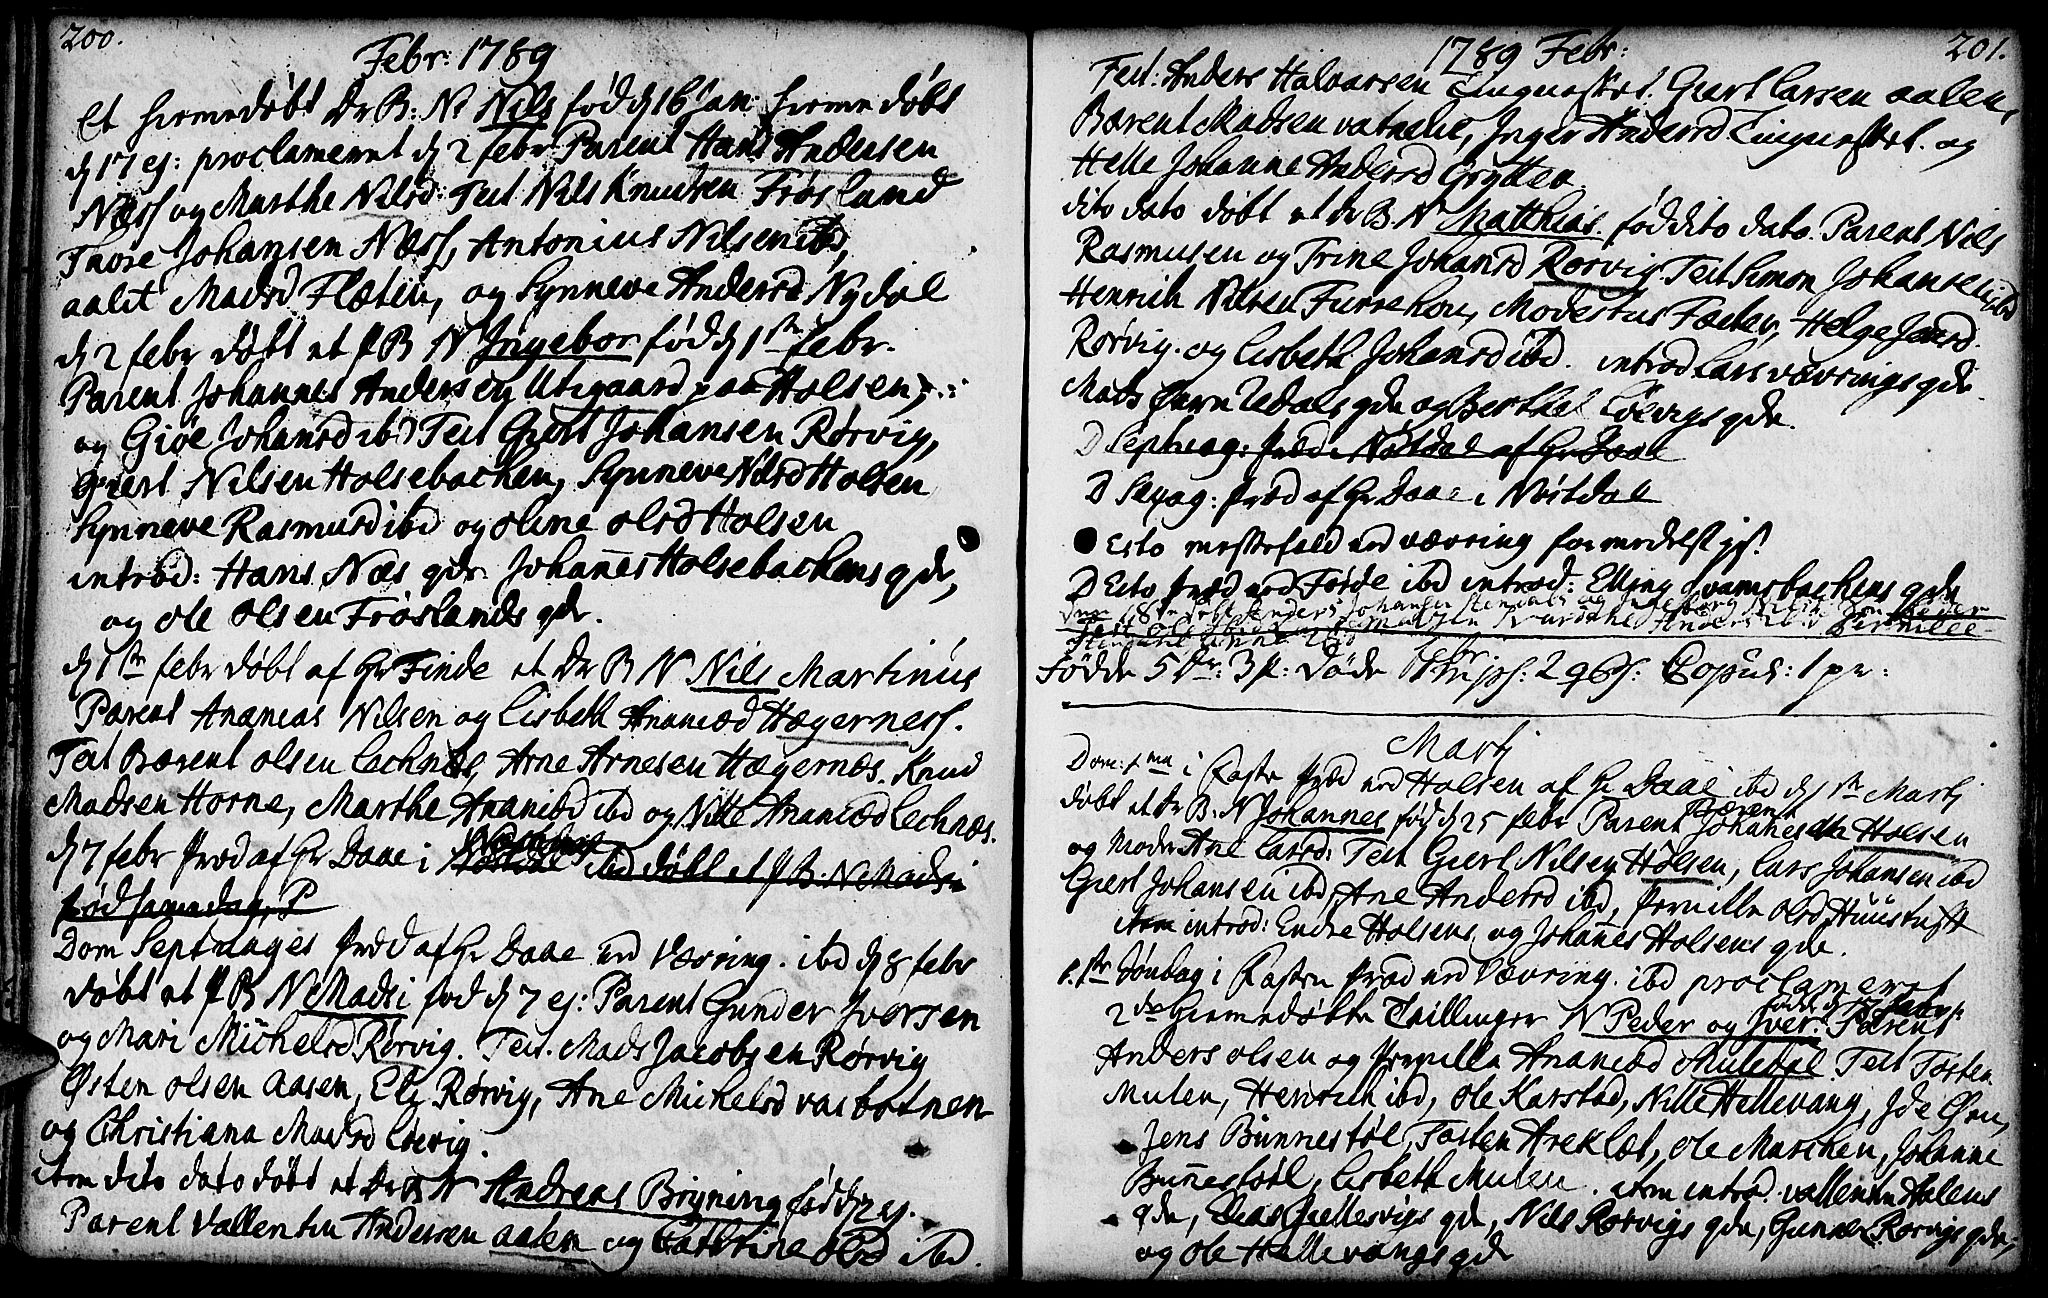 200.
Febr: 1789
Et hiemedøbt Dr B: N: Nils fød d 16 Jan: hieme døbt
d 17 ej: proclameret d 2 febr Parent Hans Andersen
Næss og Marthe Nilsd: Test Nils Knudsen Frøsland
Thore Johansen Næss, Antonius Nilsen ibd,
aalit Madsd Flæten, og Synneve Andersd Nydal
d 2 febr døbt et P B N Ingebor fød d 1ste febr.
Parent Johannes Andersen Utigaard paa Holsen,
og Giøe Johansd ibd Test Giert Johansen Rørvig,
Giert Nilsen Holsebachen, Synneve Nilsd Holsen
Synneve Rasmusd ibd og oline olsd Holsen
introd: Hans Næs qdr. Johañes Holsebachens qdr,
og ole olsen Frøslands qdr.
d 1ste febr døbt af Hr Finde et Dr B N Nils Martinus
Parent Ananias Nilsen og Lisbeth Ananiæd Hægerness.
Test Bærent olsen Lechnæs, Arne Arnesen Hægernæs. Knud
Madsen Horne, Marthe Ananiæd ibd og Nille Ananiæd Lechnæs.
d 7 febr Præd af Hr Daae i ibd døbt et P B. N Madsi
fød samme dag, P
Dom Septuages Præd af Hr Daae ved Vævring. ibd d 8 febr
døbt et P B N Madsi fød d 7 ej: Parent Gunder Iversen
og Mari Michelsd Rørvig. Test. Mads Jacobsen Rørvig
Østen olsen aasen, Eli Rørvig, Ane Michelsd vasbotnen
og Christiana Madsd Løevig.
item dito dato døbt et Dr B N Andreas Bryning fød d 7 ej.
Parent Vallentin Andersen aalen og Cathrine olsd ibd.
1789 Febr: 201.
Test: Anders Halvarsen Giert Larsen aalen,
Bærent Madsen vatnelie, Inger Andersd og
Helle Johanne Andersd Grytten
dito dato døbt et Dr B N Matthias. fød dito dato. Parent Nils
Rasmusen og Trine Johansd Rørvig Test Simon Johansen ibd
Henrich Nilsen Furrehou, Modestus Fæster, Helge Joensd.
Rørvig. og Lisbeth Johansd ibd. introd Lars vævrings qdr
Mads Qdr og Berthel Løevigs qdr.
D Septuag: Præd i Nøstdal af Hr Daae
D Sexag: Præd af Hr Daae i Nøstdal
Esto messefald ved vævring formedelst
D Esto Præd ved Førde ibd introd: Elling qvamsbachens qdr
Fødde 5 Dr: 3 P: døde Copul: 1 pr:
Martj
Dom: 1ma i Faste Præd ved Holsen af Hr Daae ibd d 1ste Martj
døbt et Dr B: N Johannes fød d 25 febr Parent Johañes Holsen
og Moder Ane Larsd: Test Giert Nilsen Holsen, Lars Johansen ibd
Giert Johansen ibd, Ane Andersd ibd, Pernille olsd Huustuft
item introd: Endre Holsens og Johañes Holsens qdr.
1ste Søndag i Fasten Præd ved Vævring. ibd proclameret
2de hiemedøbte Tvillinger N Peder og Iver. Parent
Anders olsen og Pernille Ananiæd Muledal Test Tosten
Mulen, Henrich ibd, ole Karstad, Nille Hellevang, Ide Øren,
Jens Bunnestøl, Tosten Areklet, ole Marchen, Johanne
Buñestøl, Lisbeth Mulen. item introd. vallentin Halens
qdr, Elias Giellesvigs qdr, Nils Rørvigs qdr, Gunner Rørvigs qdr,
og ole Hellevangs qdr